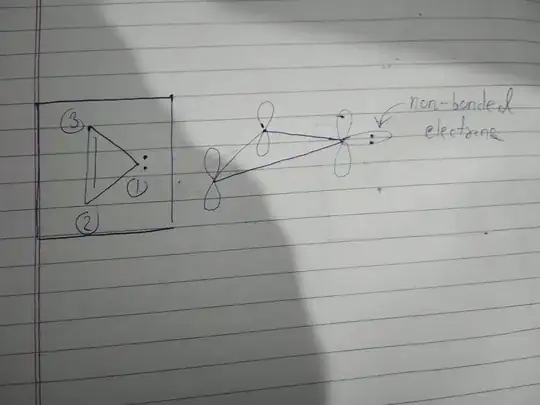 ③
①
②
non-bonded
electrons